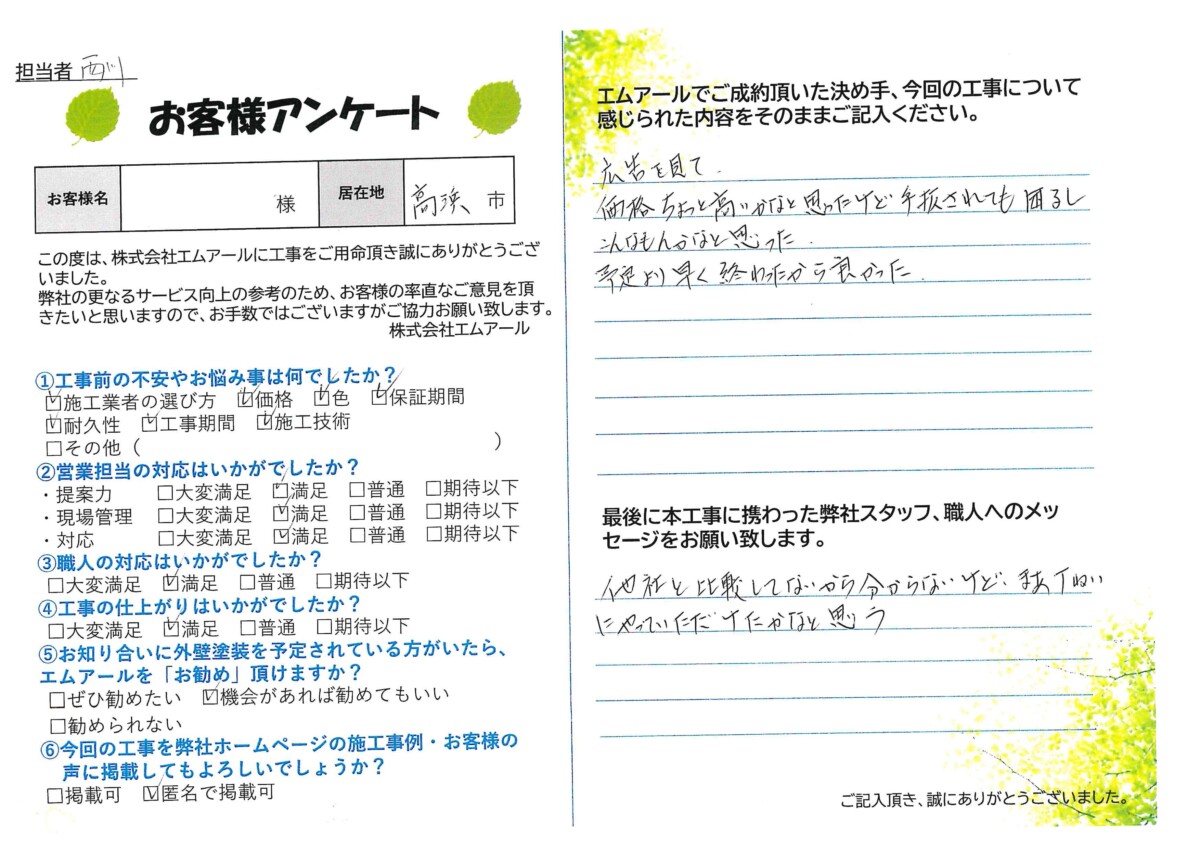 担当者 西川
お客様アンケート
お客様名 様 居在地 高浜 市
この度は、株式会社エムアールに工事をご用命頂き誠にありがとうござ
いました。
弊社の更なるサービス向上の参考のため、お客様の率直なご意見を頂
きたいと思いますので、お手数ではございますがご協力お願い致します。
株式会社エムアール
①工事前の不安やお悩み事は何でしたか？
☑施工業者の選び方 ☑価格 ☑色 ☑保証期間
☑耐久性 ☑工事期間 ☑施工技術
□その他（ ）
②営業担当の対応はいかがでしたか？
・提案力 □大変満足 ☑満足 □普通 □期待以下
・現場管理 □大変満足 ☑満足 □普通 □期待以下
・対応 □大変満足 ☑満足 □普通 □期待以下
③職人の対応はいかがでしたか？
□大変満足 ☑満足 □普通 □期待以下
④工事の仕上がりはいかがでしたか？
□大変満足 ☑満足 □普通 □期待以下
⑤お知り合いに外壁塗装を予定されている方がいたら、
エムアールを「お勧め」頂けますか？
□ぜひ勧めたい ☑機会があれば勧めてもいい
□勧められない
⑥今回の工事を弊社ホームページの施工事例・お客様の
声に掲載してもよろしいでしょうか？
□掲載可 ☑匿名で掲載可
エムアールでご成約頂いた決め手、今回の工事について
感じられた内容をそのままご記入ください。
広告を見て.
価格ちょっと高いかなと思ったけど手抜されても困るし
こんなもんかなと思った.
予定より早く終わったから良かった.
最後に本工事に携わった弊社スタッフ、職人へのメッ
セージをお願い致します。
他社と比較してないから分からないけど、まあていねい
にやっていただけたかなと思う
ご記入頂き、誠にありがとうございました。